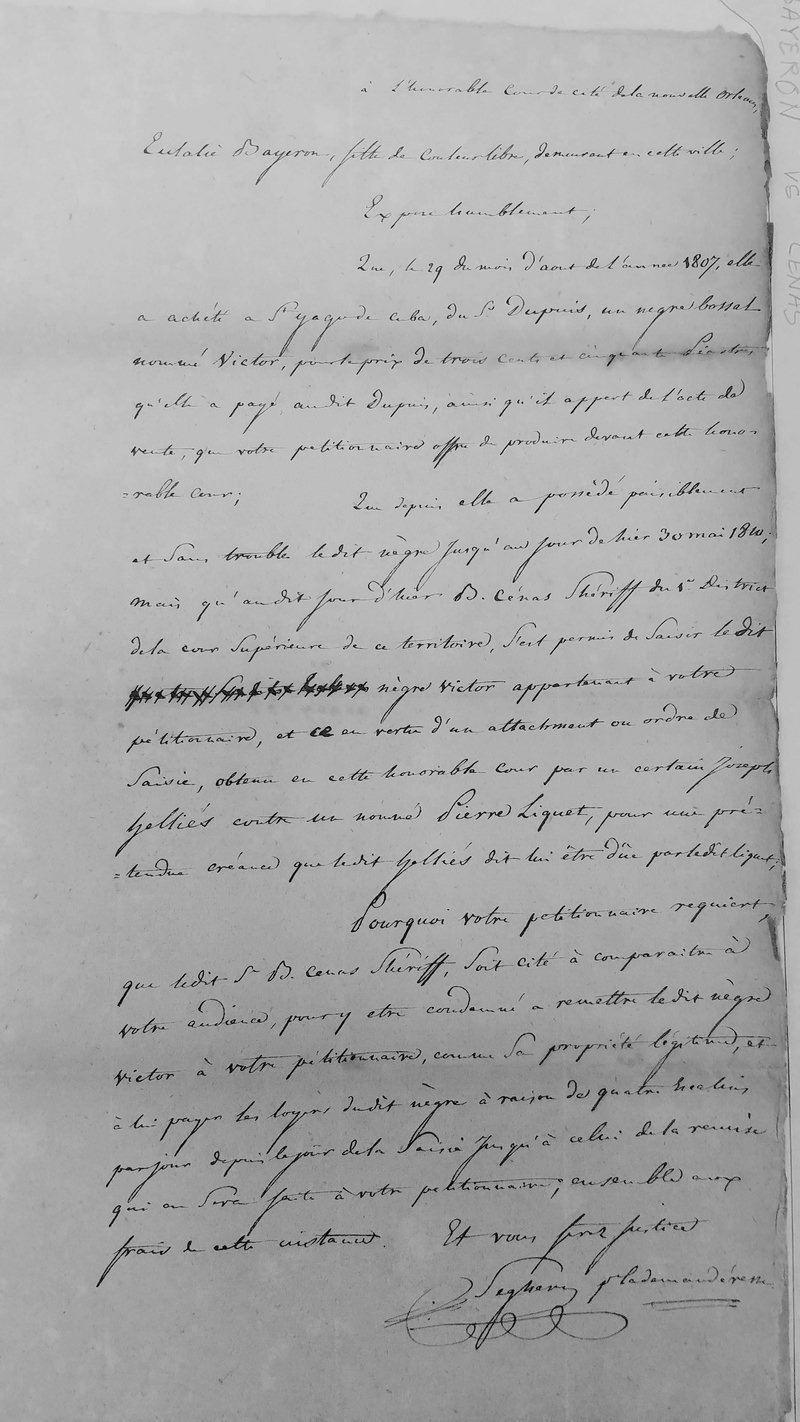 à l'honorable Cour de cité de la nouvelle Orleans,
Eulalie Bayeron, fille de Couleur libre, demeurant en cette ville;
Expose humblement;
Que, le 29 du mois d'aout de l'année 1807, elle
a achété a St yago de Cuba, du Sr Dupuis, un nègre bossal
nommé Victor, pour le prix de trois cents et cinquante Piastres
qu'elle a payé audit Dupuis, ainsi qu'il appert de l'acte de
vente, que votre petitionnaire offre de produire devant cette hono-
=rable cour;
Que depuis elle a possèdé paisiblement
et sans trouble ledit nègre jusqu'au jour de hier 30 mai 1810;
mais qu'audit jour d'hier B. Cénas Shériff du 1r District
de la cour Supérieure de ce territoire, s'est permis de saisir le dit
nègre Victor appartenant à votre
pétitionnaire, et ce en vertu d'un attachment ou ordre de
Saisie, obtenu en cette honorable cour par un certain Joseph
Gelliés contre un nommé Pierre Liquet, pour une pré-
=tendue créance que ledit Gelliés dit lui être dûe par ledit Liquet;
Pourquoi votre petitionnaire requiert,
que ledit Sr B. Cenas Shériff, soit cité à comparaitre à
votre audience, pour y etre condamné a remettre ledit nègre
Victor à votre pétitionnaire, comme sa propriété légitime, et
à lui payer les loyers dudit nègre à raison de quatre Escalins
par jour depuis le jour de la Saisie jusqu'à celui de la remise
qui en sera faite à votre petitionnaire; ensemble aux
frais de cette instance. Et vous ferez justice
Seghers pr la demandéresse
BAYERON VS CENAS